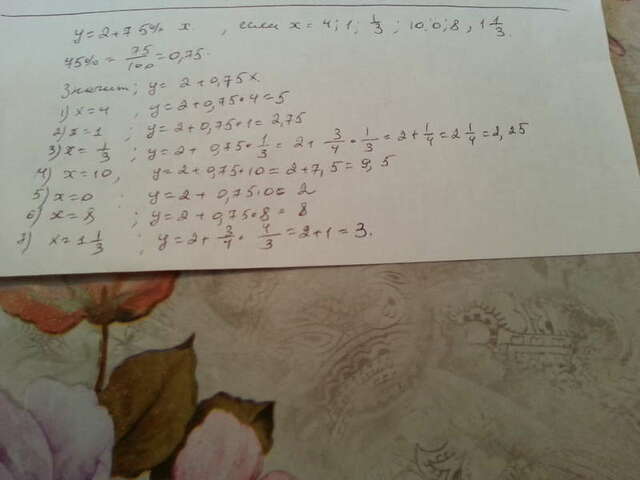 y = 2 + 75% x , если x = 4; 1; 1/3; 10; 0; 8, 1 1/3.
75% = 75/100 = 0,75.
Значит; y = 2 + 0,75x.
1) x = 4 , y = 2 + 0,75 • 4 = 5
2) x = 1 ; y = 2 + 0,75 • 1 = 2,75
3) x = 1/3 ; y = 2 + 0,75 • 1/3 = 2 + 3/4 • 1/3 = 2 + 1/4 = 2 1/4 = 2,25
4) x = 10, y = 2 + 0,75 • 10 = 2 + 7,5 = 9,5
5) x = 0 ; y = 2 + 0,75 • 0 = 2
6) x = 8, ; y = 2 + 0,75 • 8 = 8
7) x = 1 1/3 ; y = 2 + 3/4 • 4/3 = 2 + 1 = 3.